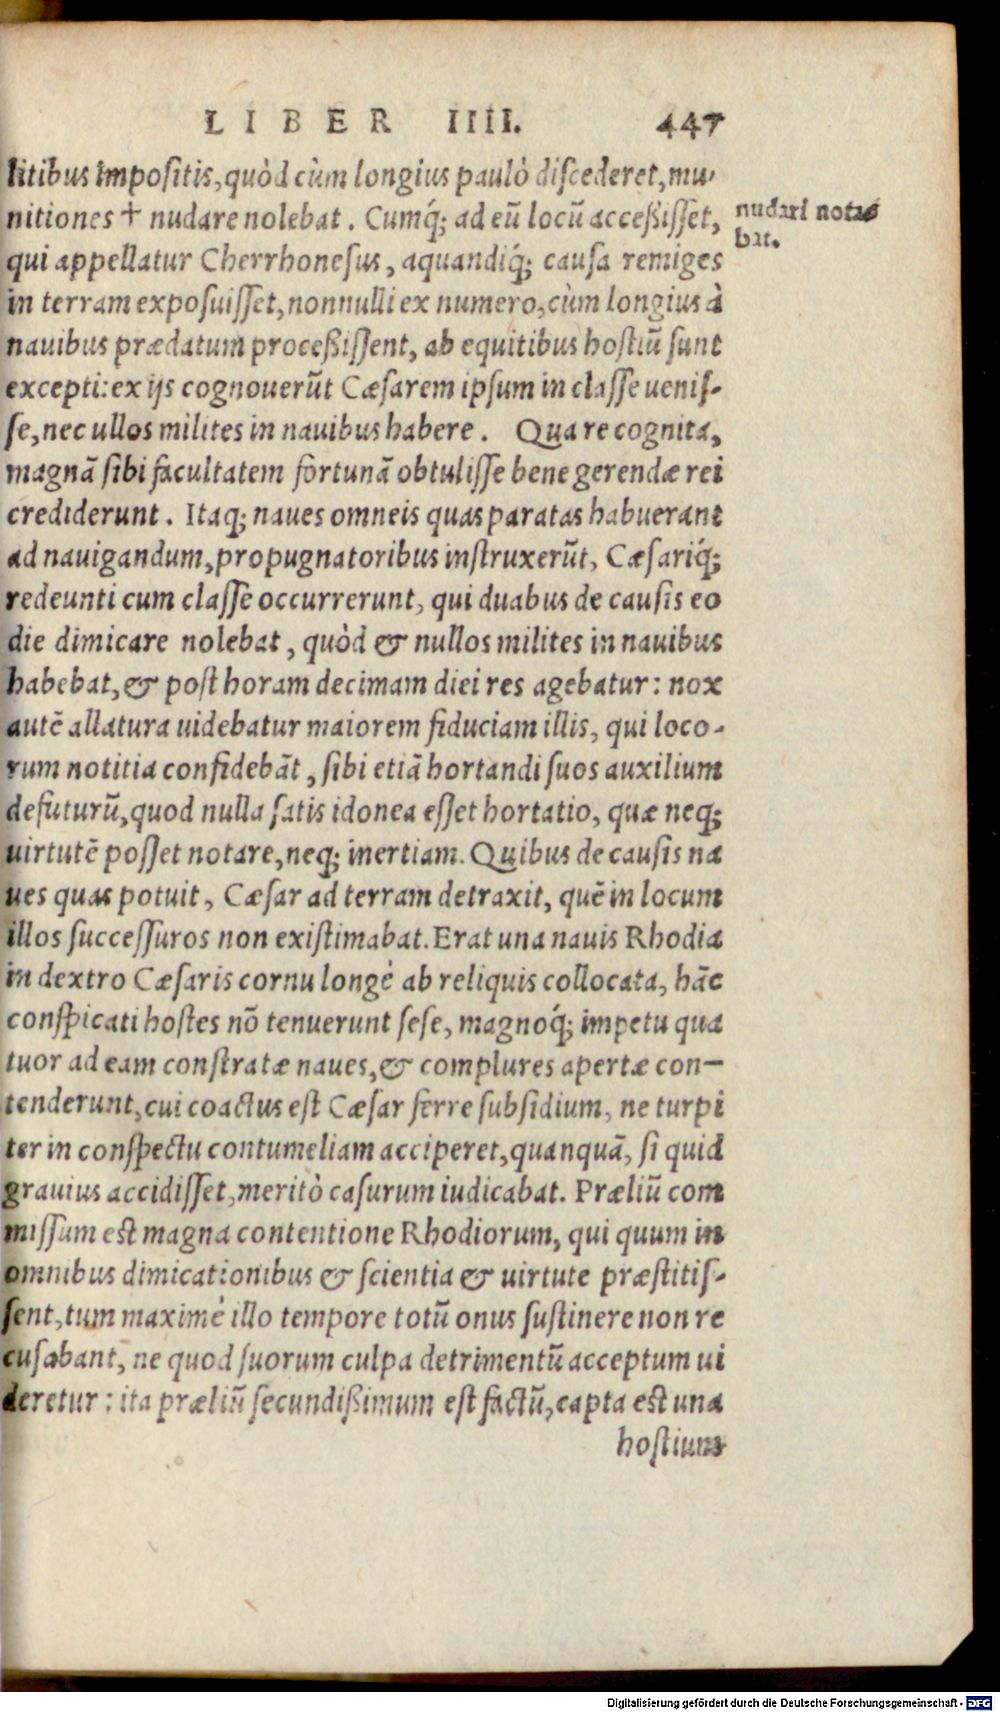 LIBER IIII. 447
litibus impositis, quòd cùm longius paulò discederet, mu-
nitiones † nudare nolebat. Cumq́; ad eũ locũ accessisset,
nudari nota⸗
bat.
qui appellatur Cherrhonesus, aquandiq́; causa remiges
in terram exposuisset, nonnulli ex numero, cùm longius à
nauibus prædatum processissent, ab equitibus hostiũ sunt
excepti: ex ijs cognouerũt Cæsarem ipsum in classe uenis-
se, nec ullos milites in nauibus habere. Qua re cognita,
magnã sibi facultatem fortunã obtulisse bene gerendæ rei
crediderunt. Itaq; naues omneis quas paratas habuerant
ad nauigandum, propugnatoribus instruxerũt, Cæsariq́;
redeunti cum classe occurrerunt, qui duabus de causis eo
die dimicare nolebat, quòd & nullos milites in nauibus
habebat, & post horam decimam diei res agebatur: nox
autẽ allatura uidebatur maiorem fiduciam illis, qui loco-
rum notitia confidebãt, sibi etiã hortandi suos auxilium
defuturũ, quod nulla satis idonea esset hortatio, quæ neq;
uirtutẽ posset notare, neq; inertiam. Quibus de causis na
ues quas potuit, Cæsar ad terram detraxit, quẽ in locum
illos successuros non existimabat. Erat una nauis Rhodia
in dextro Cæsaris cornu longè ab reliquis collocata, hãc
conspicati hostes nõ tenuerunt sese, magnoq́; impetu qua
tuor ad eam constratæ naues, & complures apertæ con-
tenderunt, cui coactus est Cæsar ferre subsidium, ne turpi
ter in conspectu contumeliam acciperet, quanquã, si quid
grauius accidisset, meritò casurum iudicabat. Præliũ com
missum est magna contentione Rhodiorum, qui quum in
omnibus dimicationibus & scientia & uirtute præstitis-
sent, tum maximè illo tempore totũ onus sustinere non re
cusabant, ne quod suorum culpa detrimentũ acceptum ui
deretur: ita præliũ secundissimum est factũ, capta est una
hostium
Digitalisierung gefördert durch die Deutsche Forschungsgemeinschaft - DFG